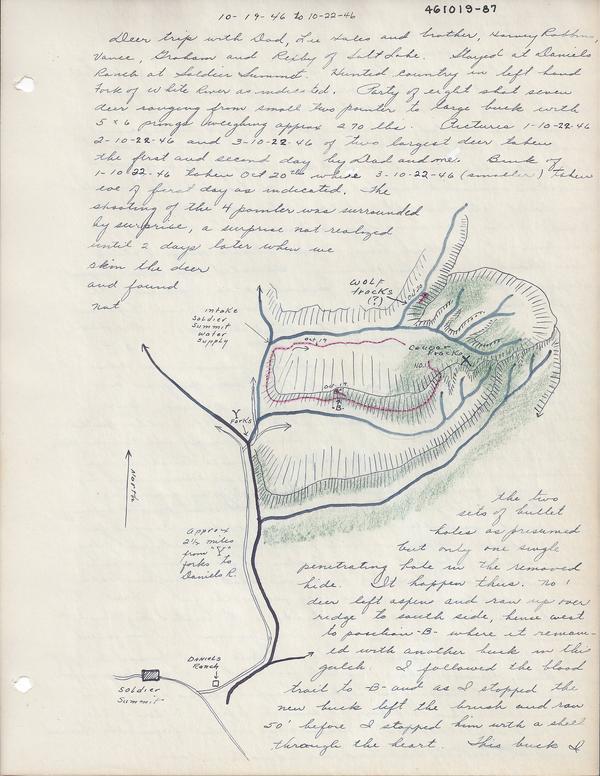 10-19-46 to 10-22-46
461019-87
Deer trip with Dad, Lee Sales and brother, Harvey Robbins,
Vance, Graham and Reiby of Salt Lake. Stayed at Daniels
Ranch at Soldier Summit. Hunted country in left hand
fork of White River as indicated. Party of eight shot seven
deer ranging from small two pointer to large buck with
5 x 6 prongs weighing approx 270 lbs. Pictures 1-10-22-46
2-10-22-46 and 3-10-22-46 of two largest deer taken
the first and second day by Dad and me. Buck of
1-10-22-46 taken Oct 20th while 3-10-22-46 (smaller) taken
eve of first day as indicated. The
shooting of the 4 pointer was surrounded
by surprise, a surprise not realized
until 2 days later when we
skin the deer
and found
not
WOLF
tracks
(?)
Oct 20
intake
Soldier
Summit
Water
Supply
Oct, 19
Cougar
Tracks
X
NO.1
Oct. 19
B
Y
Forks
North
Approx
2½ miles
from "Y"
forks to
Daniels R.
Daniels
Ranch
Soldier
Summit
the two
sets of bullet
holes as presumed
but only one single
penetrating hole in the removed
hide. It happen thus. No 1
deer left aspen and ran up over
ridge to south side, hence west
to position -B- where it remain-
ed with another buck in this
gulch. I followed the blood
trail to -B- and as I stopped the
new buck left the brush and ran
50' before I stopped him with a shell
through the heart. This buck I